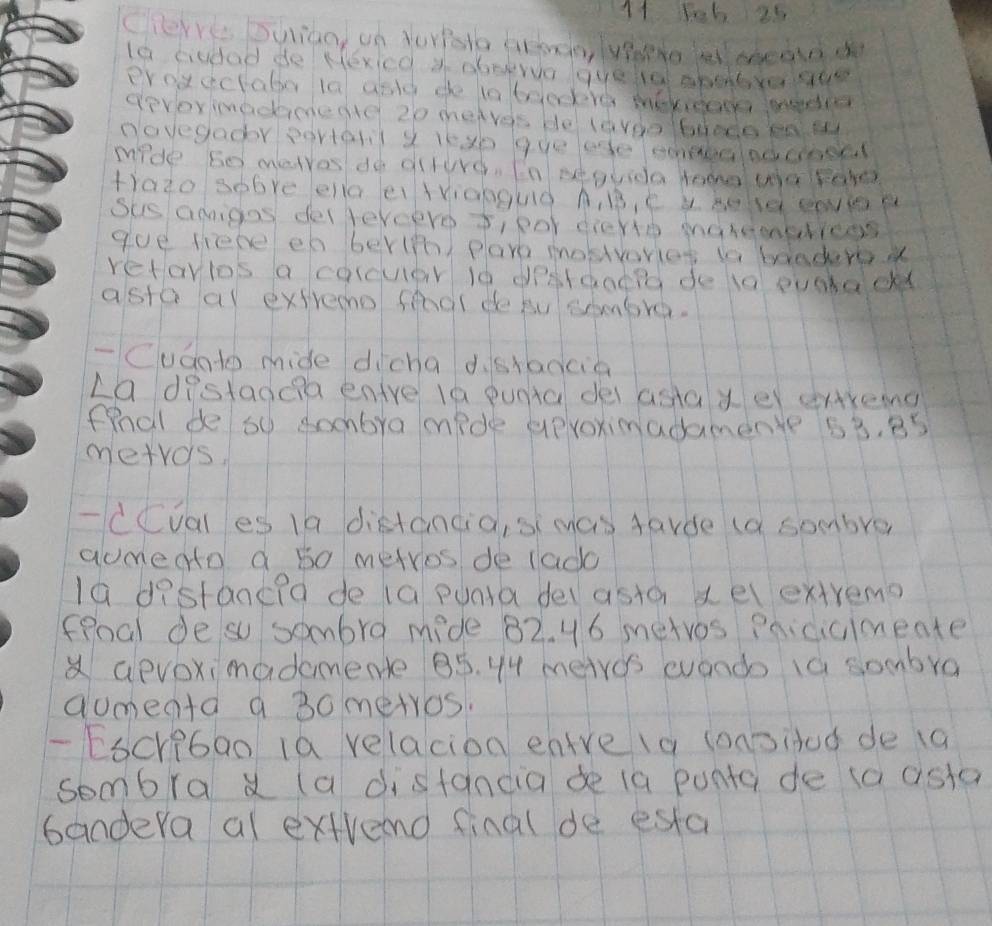 11 Feb 25
Cierre Julian, un turista visito el
la ciudad de México y observo que la sombra que
proyectaba la asta de la bandera mexicana media
aproximadamente 20 metros de largo busco en su
navegador portatil y leyo que ese
mide 50 metros de altura. En seguida tomo una foto
trazo sobre ella el triangulo A, B, C y se la envio a
sus amigos del tercero 5, por cierto matematicos
que tiene en berlin, para mostrarles la bandera y
retarlos a calcular la distancia de la punta del
asta al extremo final de su sombra.
- Cuánto mide dicha distancia
La distancia entre la punta del asta y el extremo
final de su sombra mide aproximadamente 53.85
metros.
- ¿Cual es la distancia, si mas tarde la sombra
aumento a 50 metros de lado
la distancia de la punta del asta y el extremo
final de su sombra mide 82.46 metros inicialmente
y aproximadamente 85.44 metros cuando la sombra
aumenta a 30 metros.
- Escriban la relacion entre la lonsitud de la
sombra y la distancia de la punta de la asta
bandera al extremo final de esta